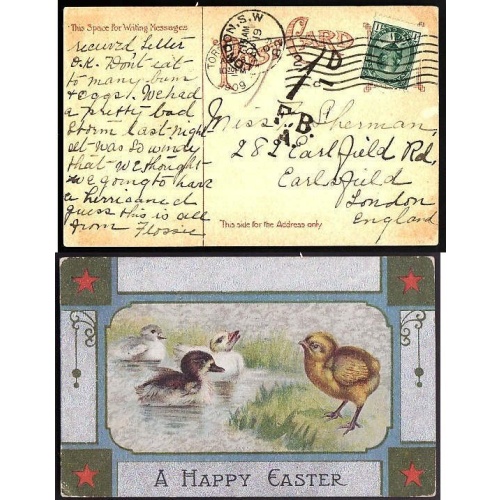 This Space for Writing Messages
recieved letter
O.K. Don't eat
to many buns
& eggs. We had
a pretty bad
storm last night
it was so windy
that we thought
we going to have
a herricaned
guess this is all
from Flossie
POST CARD
LONDON. S.W
TORONTO
1909
1D
P.B.
A.
Miss Sherman,
282 Earlsfield Rd,
Earlsfield
London
England
This side for the Address only
A HAPPY EASTER